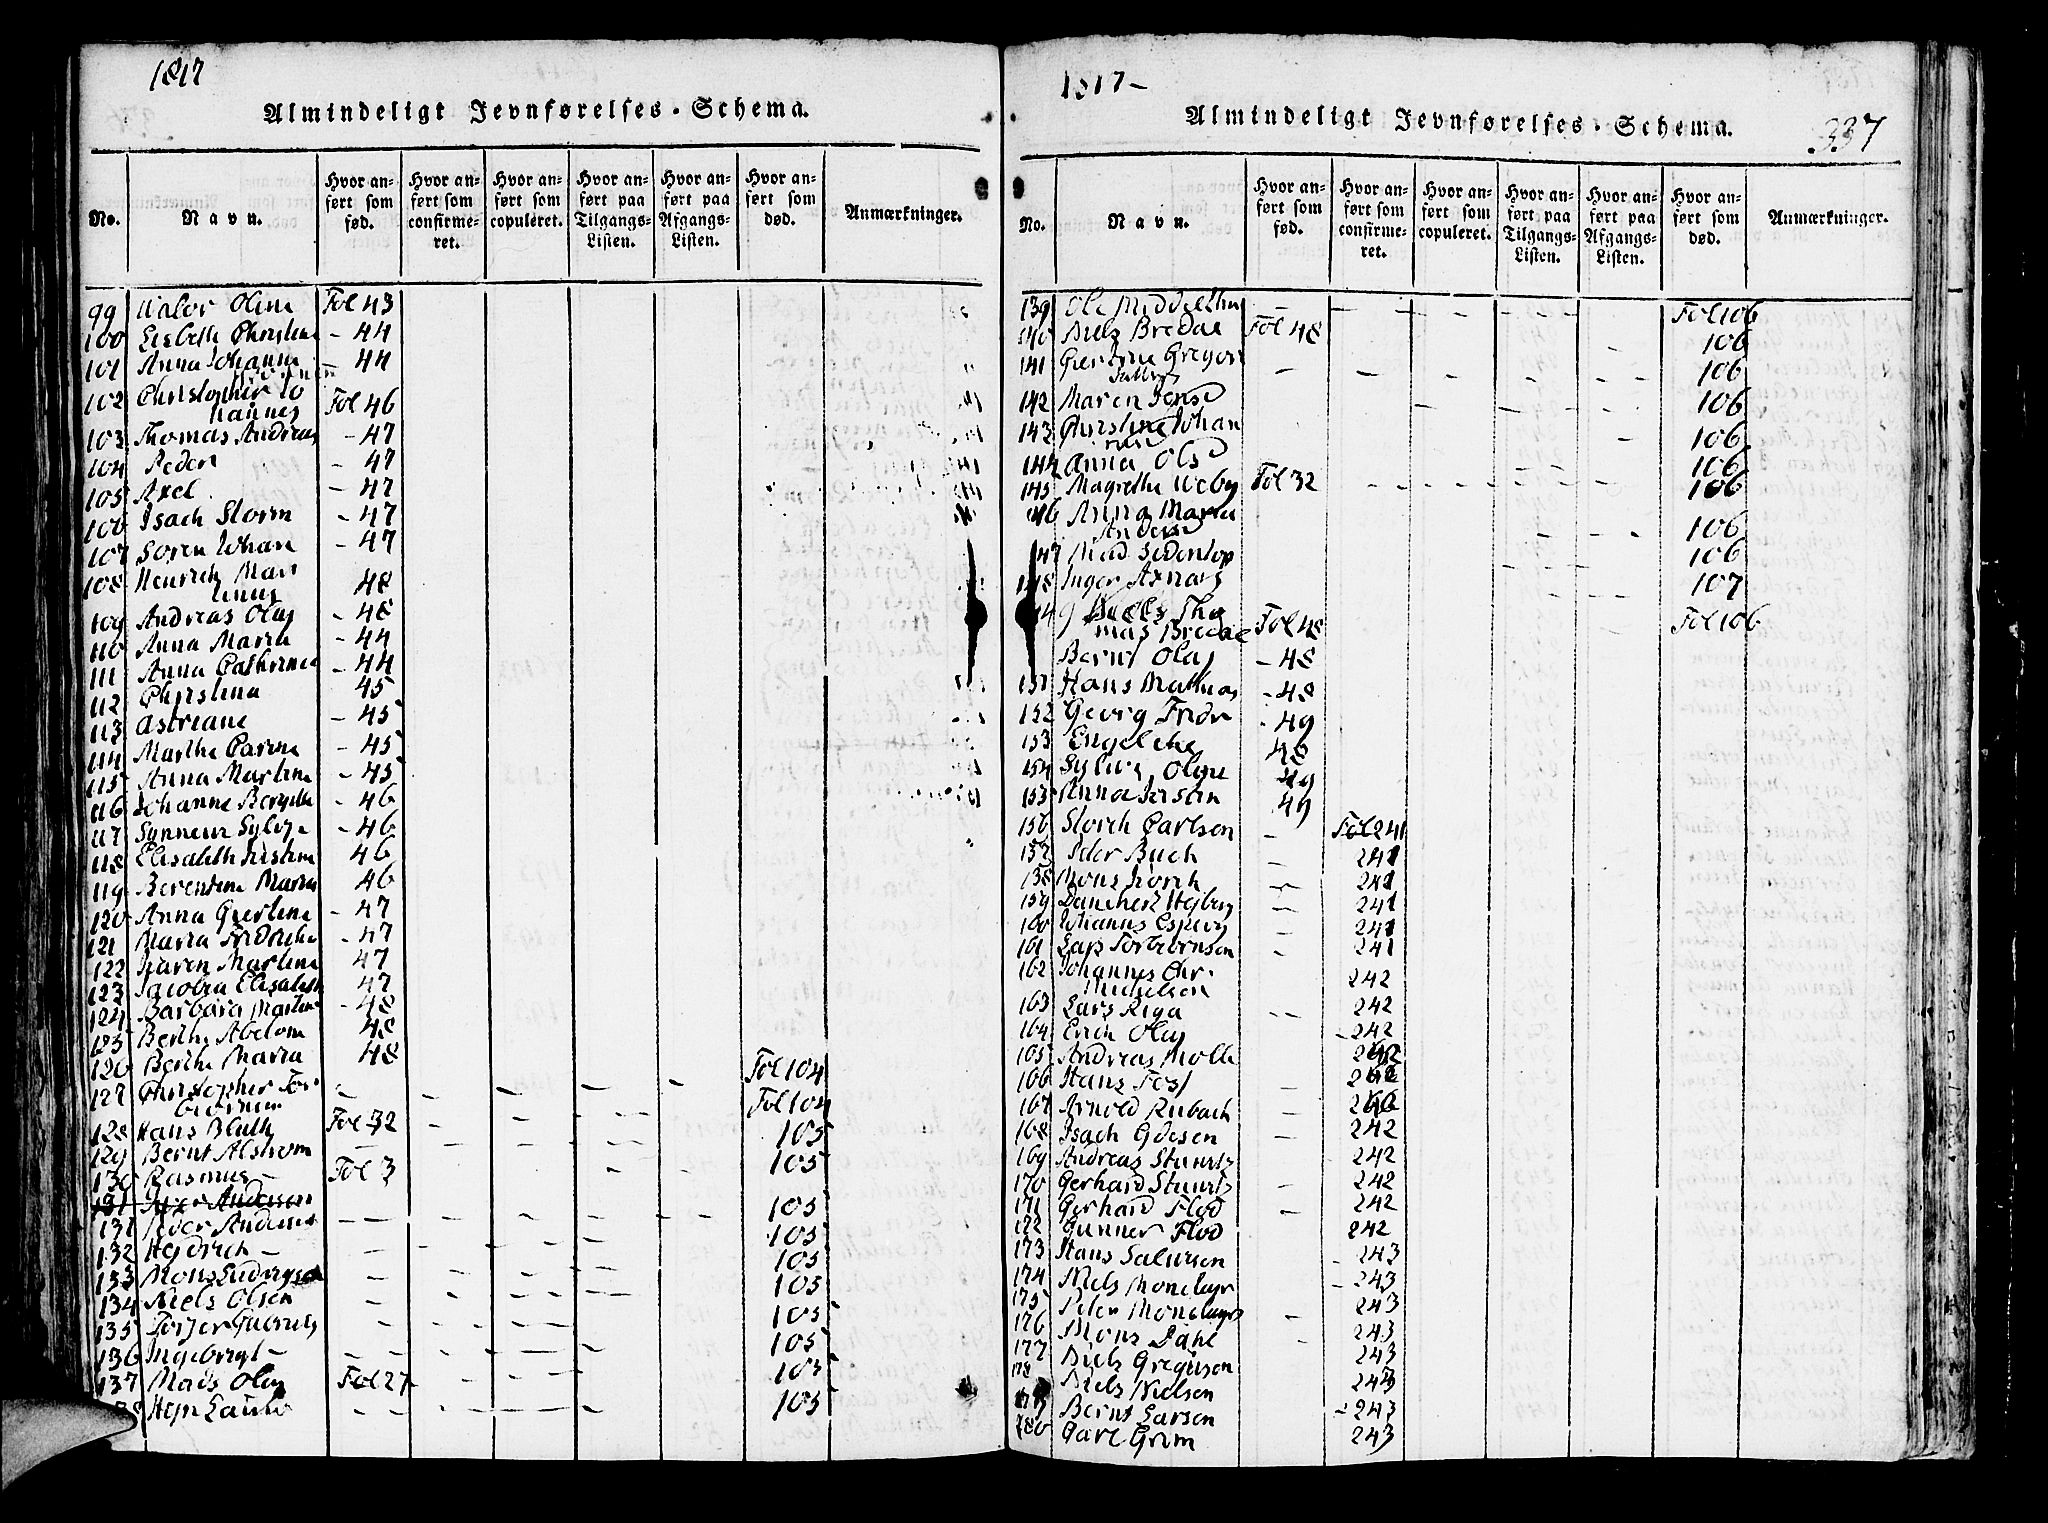 1817
Almindeligt Jevnførelses-Schema.
No.
Navn.
Hvor an-
ført som
fød.
Hvor an-
ført som
confirme-
ret.
Hvor an-
ført som
copuleret.
Hvor an-
ført paa
Tilgangs-
Listen.
Hvor an-
ført paa
Afgangs-
Listen.
Hvor an-
ført som
død.
Anmærkninger.
99 Valor Oline Fol 43
100 Lisbeth Christine - 44
101 Anna Johanna - 44
102 Christopher Jo
hannes Fol 46
103 Thomas Andreas - 47
104 Peder - 47
105 Axel - 47
106 Isach Storm - 47
107 Søren Johan - 47
108 Henrich Mar
tinus 48
109 Andreas Olaj - 48
110 Anna Maria - 44
111 Anna Cathrina - 44
112 Christina 45
113 Astriane - 45
114 Marthe Carine - 45
115 Anna Martine - 45
116 Johanne Bergitte - 46
117 Synneur Sylvja - 46
118 Elisabeth Kistine 46
119 Berentine Maria 46
120 Anna Giertine - 47
121 Maria Fridricke - 47
122 Karen Martine 47
123 Jacobia Elisabeth 47
124 Barbara Martine - 48
125 Berthe Abelone 48
126 Berthe Maria 48 Fol 104
127 Christopher Tor
biørnsen - - - - - Fol 104
128 Hans Bluth Fol 32 - - - 105
129 Bernt Alstrom - 105
130 Rasmus - Fol 3
131 Anderson 105
131 Peder Anderss - 105
132 Hejdrich - 105
133 Mons Ludvigsen - 105
134 Niels Olsen - 105
135 Torjer - 105
136 Ingebregt - 105
137 Mads Olaj Fol 27 105
Hejn
1817-
Almindeligt Jevnførelses-Schema.
337
No.
Navn.
Hvor an-
ført som
fød.
Hvor an-
ført som
confirme-
ret.
Hvor an-
ført som
copuleret.
Hvor an-
ført paa
Tilgangs-
Listen.
Hvor an-
ført paa
Afgangs-
Listen.
Hvor an-
ført som
død.
Anmærkninger.
139 Ole Middelthun - Fol 106
140 Niels Bredal Fol 48 106
141 Giertine Gregori
106
142 Maren Jensd 106
143 Christine Johan
106
144 Anna Olsd 106
145 Magrethe Weby Fol 32 106
146 Anna Maria
Andersd 106
147 Mad 106
148 Inger 107
Niels Tho
mas Bredal Fol 48 Fol 106
Bernt Olaj - 48
151 Hans Mathias - 48
152 Georg Fridr - 49
153 Engelche 48
154 Sylvie Oline 49
155 Anna 49
156 Storch Carlsen - Fol 241
157 Peder Buch - 241
158 Mons Storch - 241
159 Danchert Hejberg - 241
160 Johannes Espevig - 241
161 Lars Torbiørnsen - 241
162 Johannes Chr.
Michelsen 242
163 Lars Riga - 242
164 Erich Olaj - 242
165 Andreas Molle 242
166 Hans Tost - 242
167 Arnold Rubach - 242
168 Isach Gdesen - 242
169 Andreas Stuurtz 242
170 Gerhard Stuurtz - 242
171 Gerhard Flod - 242
172 Gunner Flod 242
173 Hans Salursen - 243
174 Niels Monclayr - 243
175 Peter Monclayr 243
176 Mons Dahl - 243
177 Niels Gregusen - 243
178 Niels Nielsen 243
179 Bernt Larsen - 243
180 Carl Grim 243